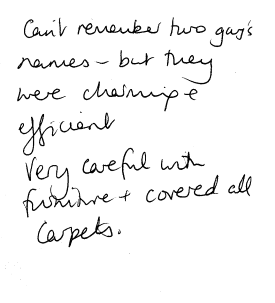 Can't remember two guy's
names - but they
were charming &
efficient
Very careful with
furniture + covered all
carpets.